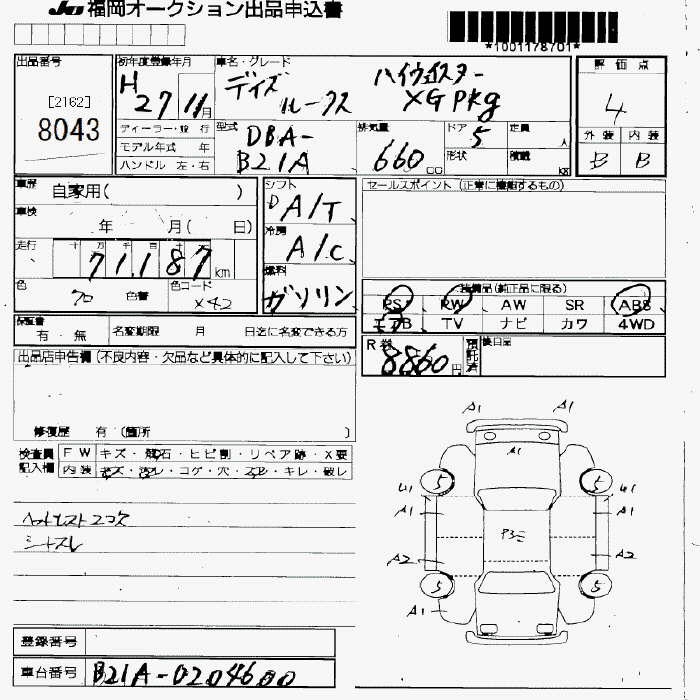 JU 福岡オークション出品申込書
*1001178701*
出品番号
[2162]
8043
初年度登録年月
H 27 11月
ディーラー・並行
モデル年式 年
ハンドル 左・右
車名・グレード
デイズ ルークス
ハイウェイスター
XGPKg
型式
DBA-
B21A
排気量
660 cc
ドア
5
形状
定員
人
積載
kg
評価点
4
外装 内装
B B
車歴
自家用( )
車検
年 月( 日)
走行
十 万 千 百 十 一
71,187 km
色
色替
色コード
X42
シフト
D A/T
冷房
A/C
燃料
ガソリン
セールスポイント (正常に機能するもの)
装備品(純正品に限る)
PS PW AW SR ABS
エアB TV ナビ カワ 4WD
保証書
有・無
名変期限 月 日迄に名変できる方
R券
8860円
預託済
後日品
出品店申告欄(不良内容・欠品など具体的に記入して下さい)
修復歴 有(箇所 )
検査員
記入欄
FW キズ・飛石・ヒビ割・リペア跡・X要
内装 キズ・汚レ・コゲ・穴・スレ・キレ・破レ
シートスレ
A1 A1
A1
5 5
U1 U1
A1 A1
A2 A2
5 5
A1
登録番号
車台番号 B21A-0204600